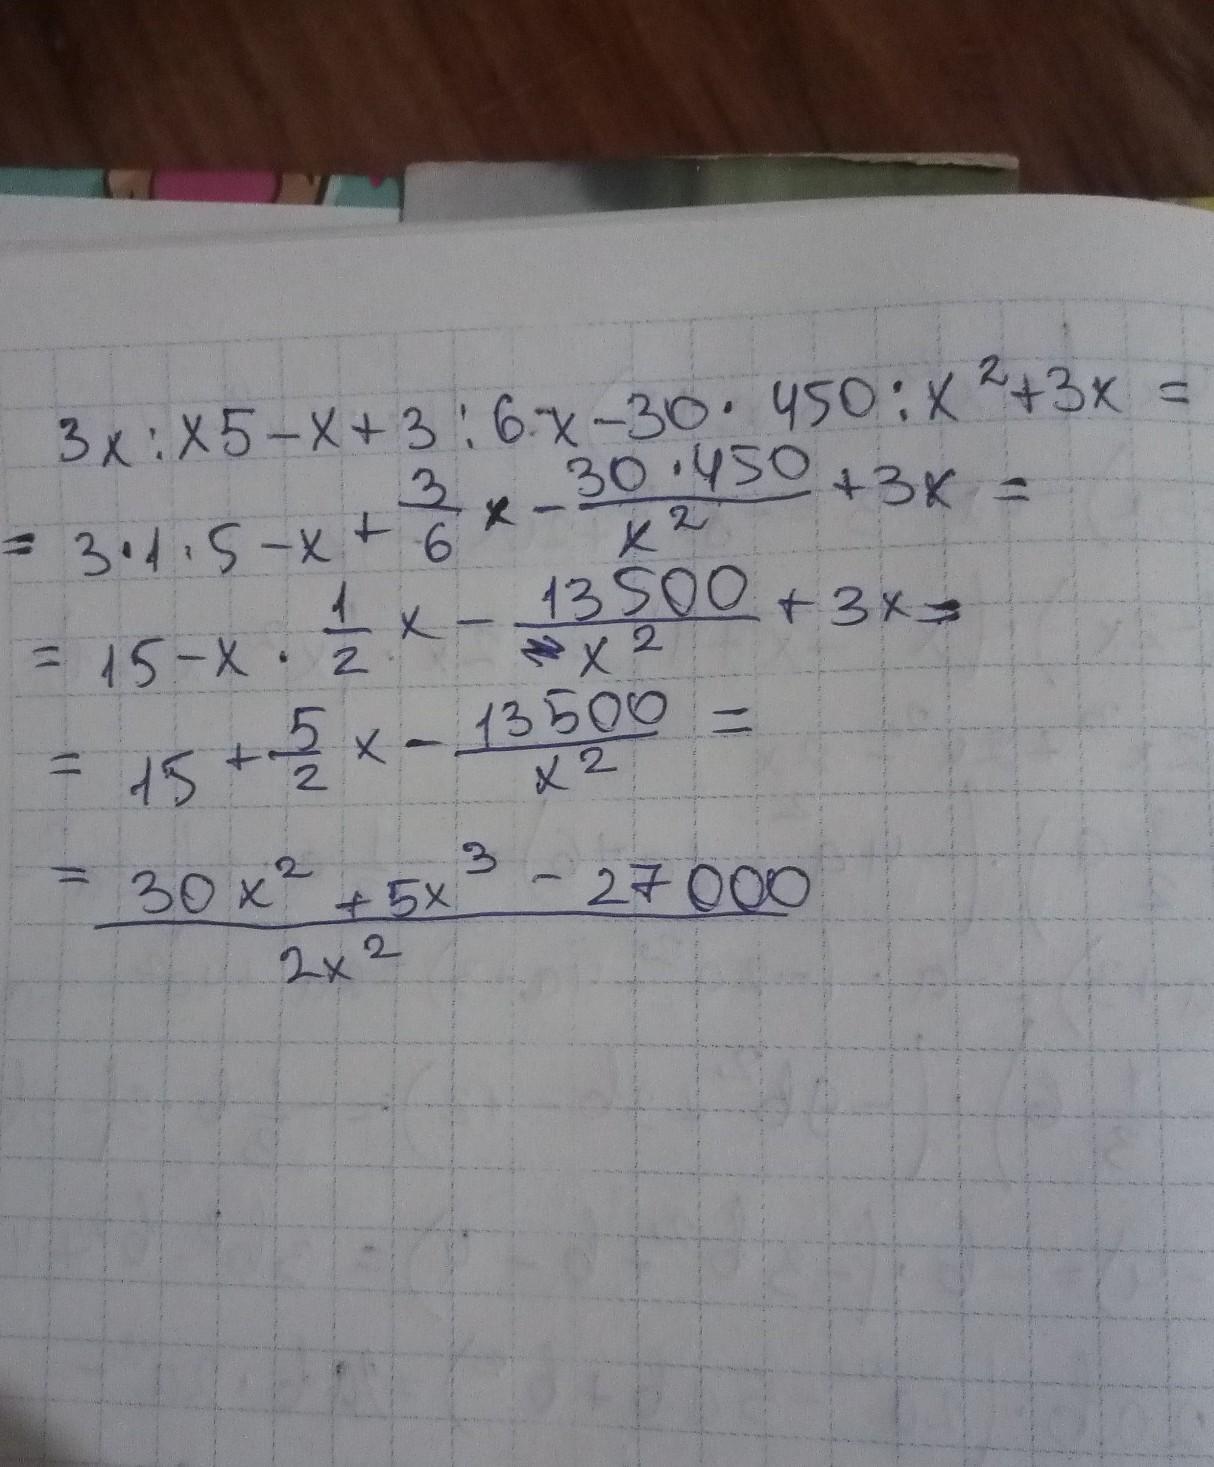 3x : x5 - x + 3 : 6 · x - 30 · 450 : x² + 3x =
= 3 · 1 · 5 - x + 3/6 x - 30 · 450/x² + 3x =
= 15 - x · 1/2 x - 13500/x² + 3x =
= 15 + 5/2 x - 13500/x² =
= 30x² + 5x³ - 27000/2x²